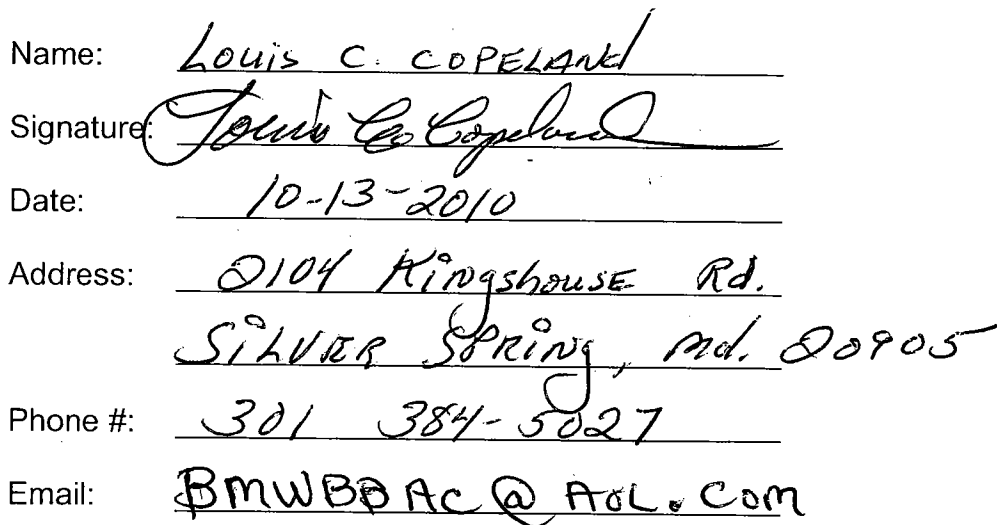 Name: Louis C. COPELANd
Signature: Louis Ceo Copeland
Date: 10-13-2010
Address: 2104 KingshousE Rd.
SiLVER SPRiNg, Md. 20905
Phone #: 301 384-5027
Email: BMWBBAC@AOL.COM